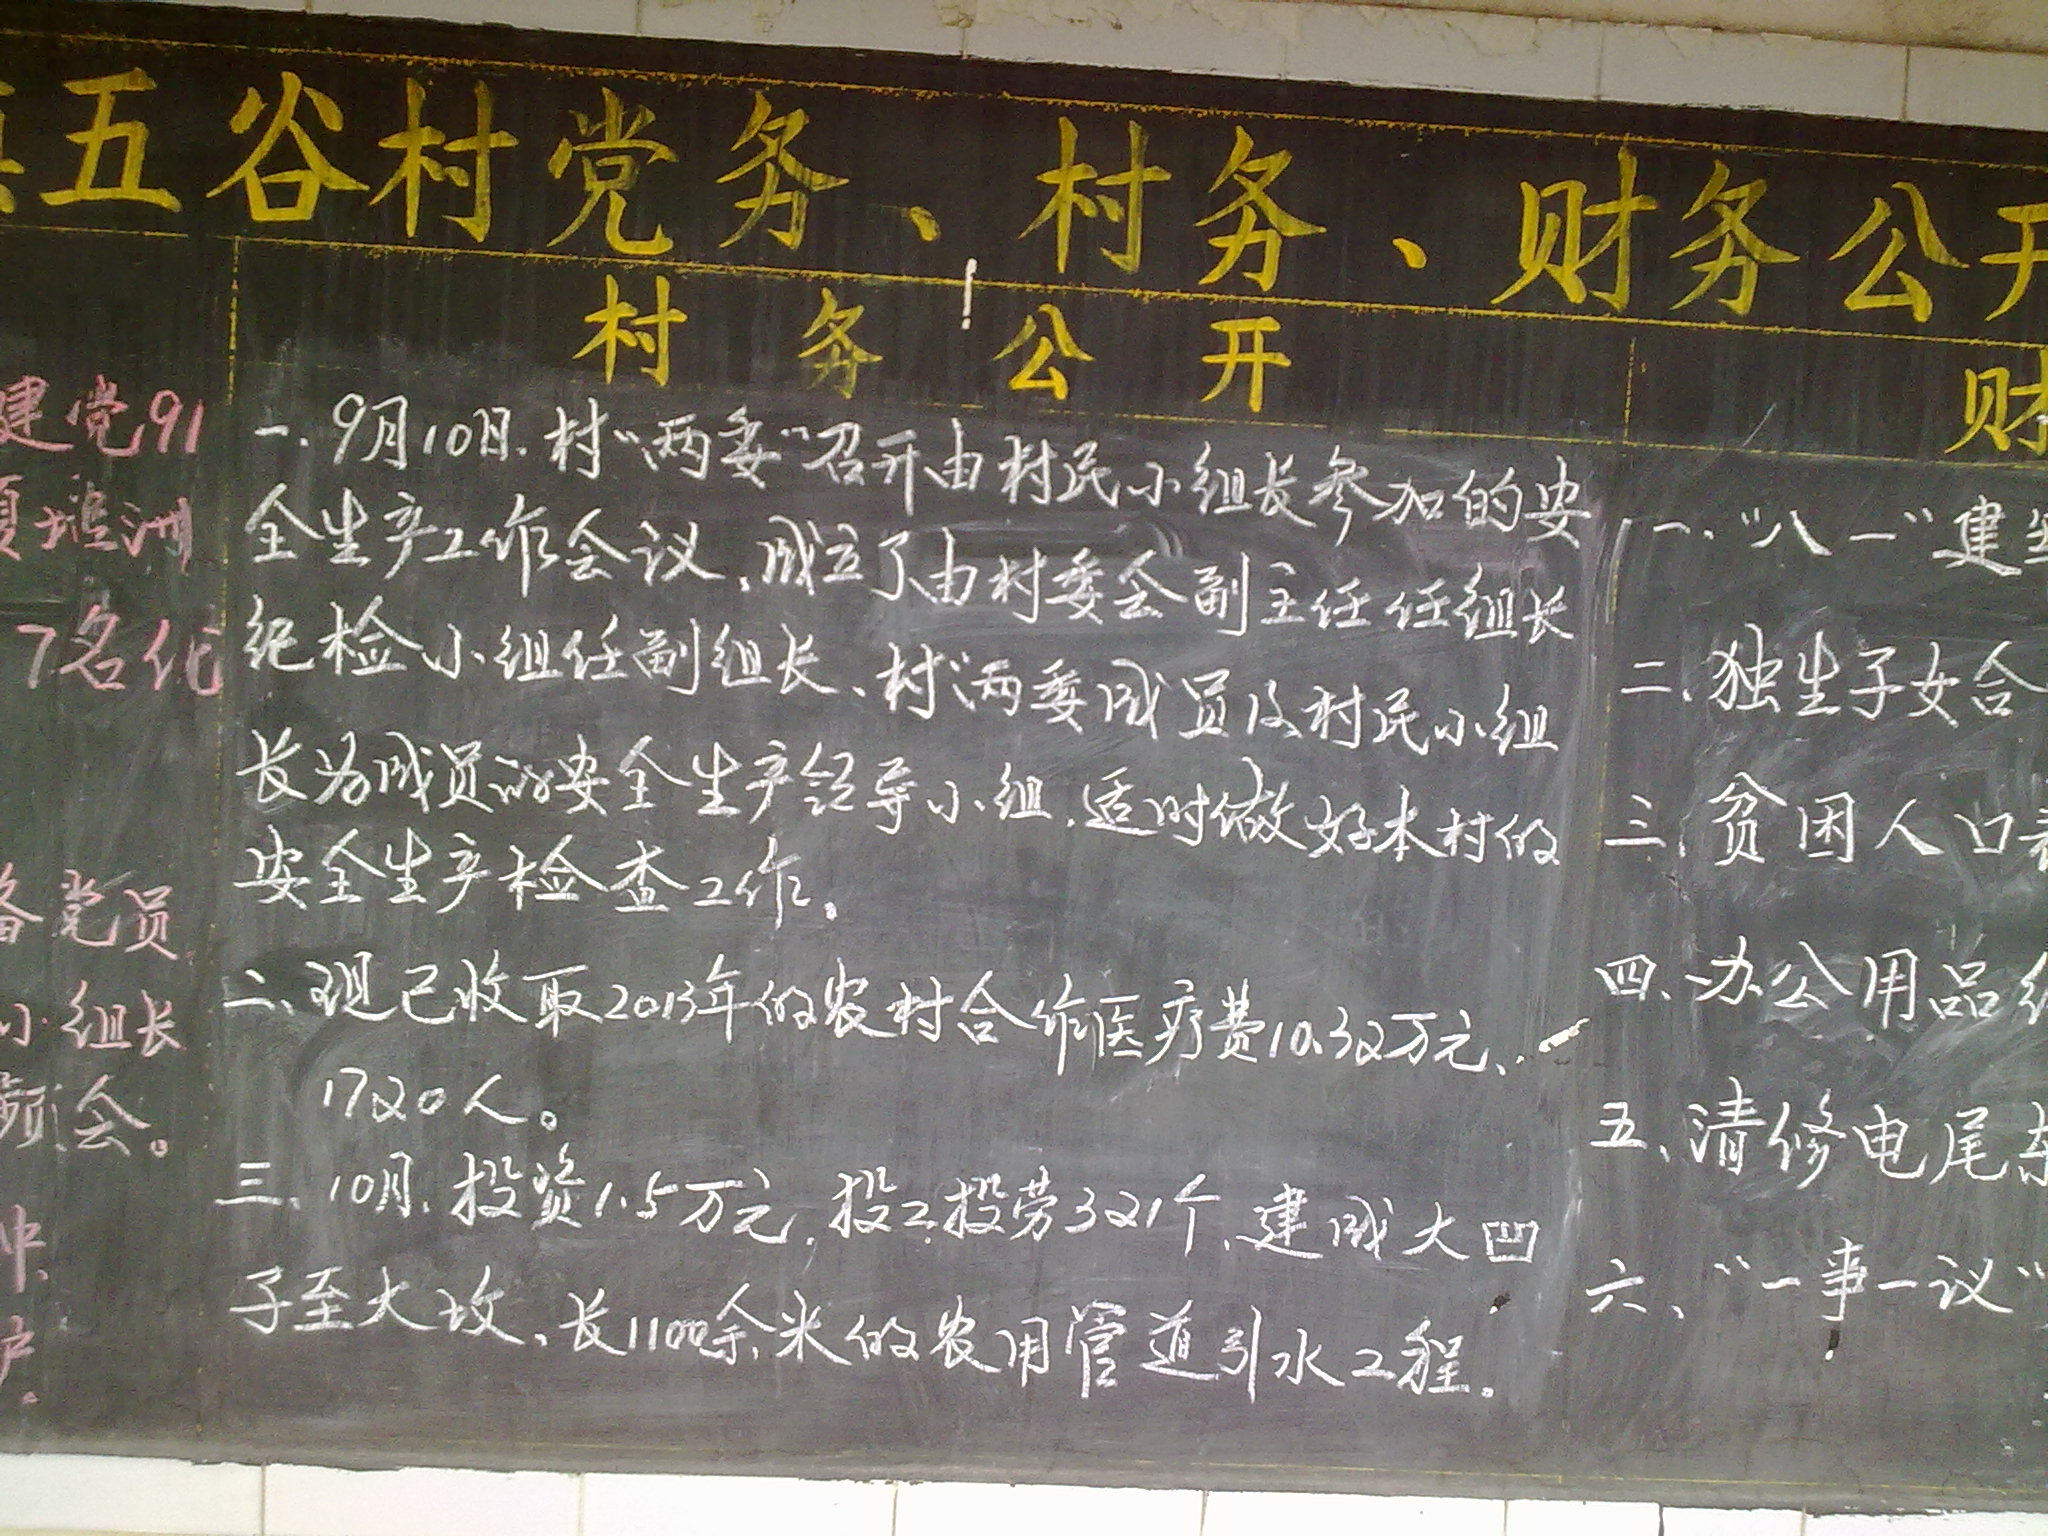 五谷村党务、村务、财务公开
村务公开
财
建党91
7名优
备党员
小组长
频会。
冲
户.
一.9月10日.村“两委”召开由村民小组长参加的安
全生产工作会议,成立了由村委会副主任任组长
纪检小组任副组长、村“两委成员及村民小组
长为成员的安全生产领导小组.适时做好本村的
安全生产检查工作。
二、现已收取2013年的农村合作医疗费10.32万元、
1720人。
三.10月.投资1.5万元,投工投劳321个,建成大凹
子至大坟、长1100余米的农用管道引水工程.
一.“八一”建
二.独生子女合
三.贫困人口
四.办公用品
五、清修电尾
六、“一事一议”